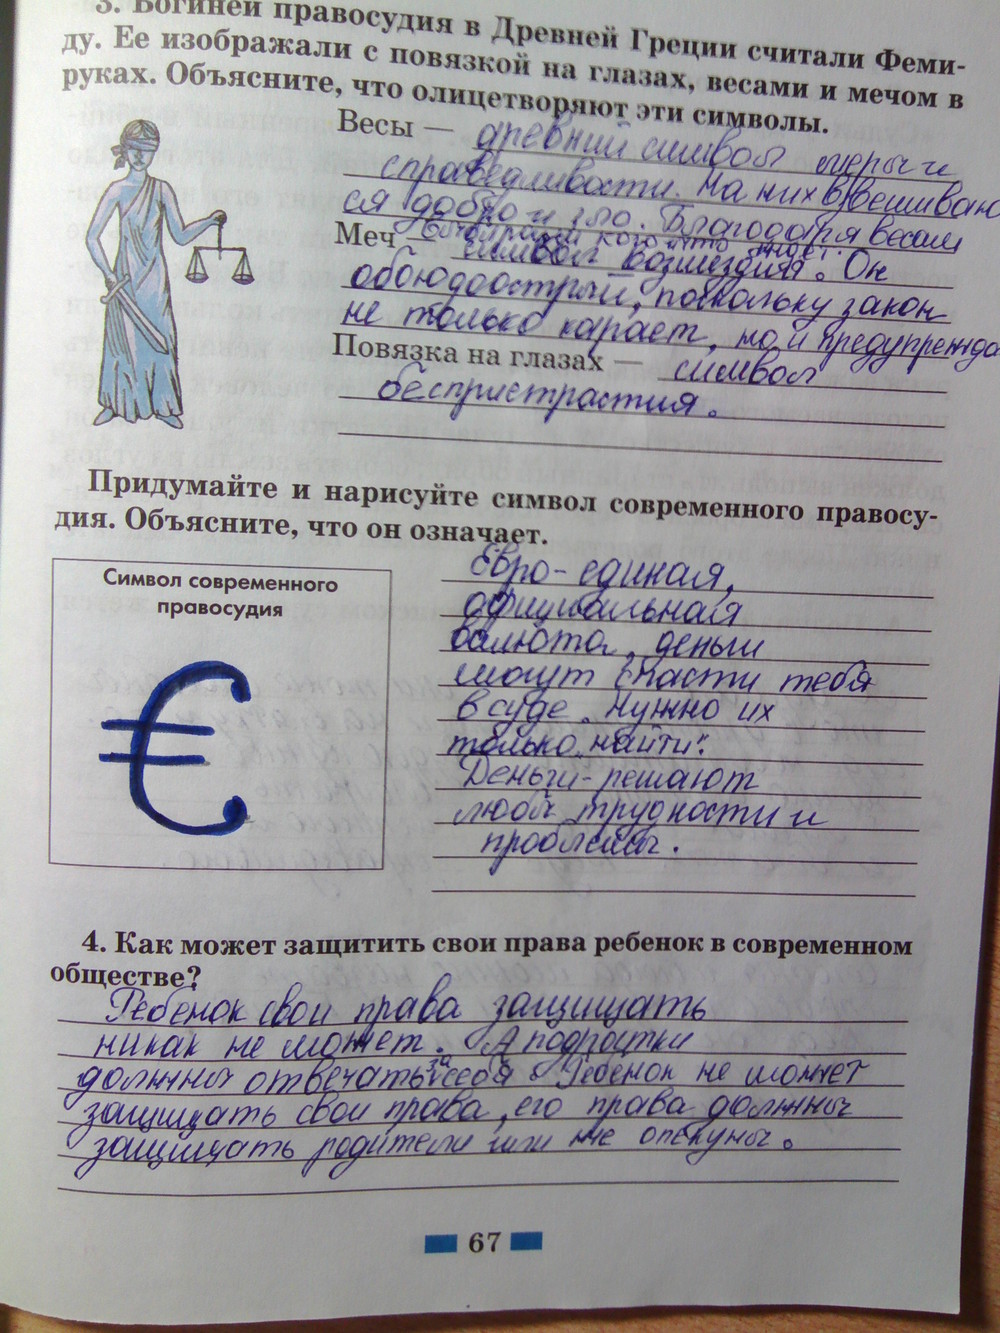 3. Богиней правосудия в Древней Греции считали Феми-
ду. Ее изображали с повязкой на глазах, весами и мечом в
руках. Объясните, что олицетворяют эти символы.
Весы — древний символ меры и
справедливости. На них взвешиваю
ся добро и зло. Благодаря весам
кого что ждет.
Меч — символ возмездия. Он
обоюдоострый, поскольку закон
не только карает, но и предупрежда
Повязка на глазах — символ
беспристрастия.
Придумайте и нарисуйте символ современного правосу-
дия. Объясните, что он означает.
Символ современного
правосудия
€
Евро-единая,
официальная
валюта, деньги
могут спасти тебя
в суде, нужно их
только найти!
Деньги-решают
любы трудности и
проблемы.
4. Как может защитить свои права ребенок в современном
обществе?
Ребенок свои права защищать
никак не может. А подростки
должны отвечать за себя. Ребенок не может
защищать свои права, его права должны
защищать родители или же опекуны.
67